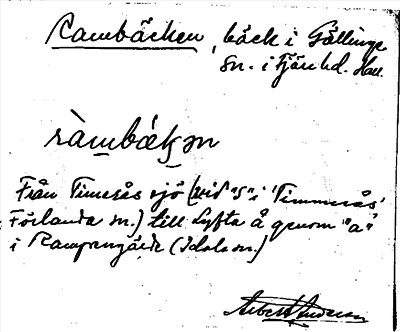 Rambäcken, bäck i Gällinge
sn. i Fjäre hd. Hall.
ràmbǽkən
Från Timerås sjö (vid "s" i 'Timmerås'
Förlanda sn.) till Lyfta å genom "a"
i Ramsengärde (Idala sn.)
Albert Andersson